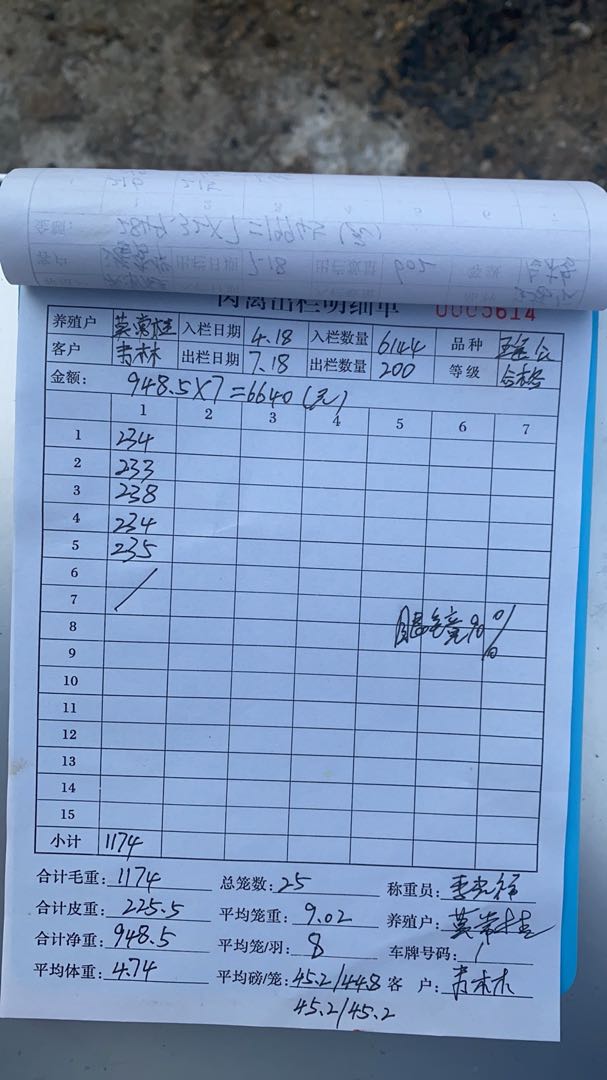 肉禽出栏明细单 0005614
养殖户 莫常桂 入栏日期 4.18 入栏数量 6144 品种
客户 韦林 出栏日期 7.18 出栏数量 200 等级 合格
金额: 948.5×7=6640(元)
1 2 3 4 5 6 7
1 234
2 233
3 238
4 234
5 235
6
7
8 90%
9
10
11
12
13
14
15
小计 1174
合计毛重: 1174 总笼数: 25 称重员:
合计皮重: 225.5 平均笼重: 9.02 养殖户: 莫常桂
合计净重: 948.5 平均笼/羽: 8 车牌号码: /
平均体重: 4.74 平均磅/笼: 45.2/44.8 客户: 韦林
45.2/45.2